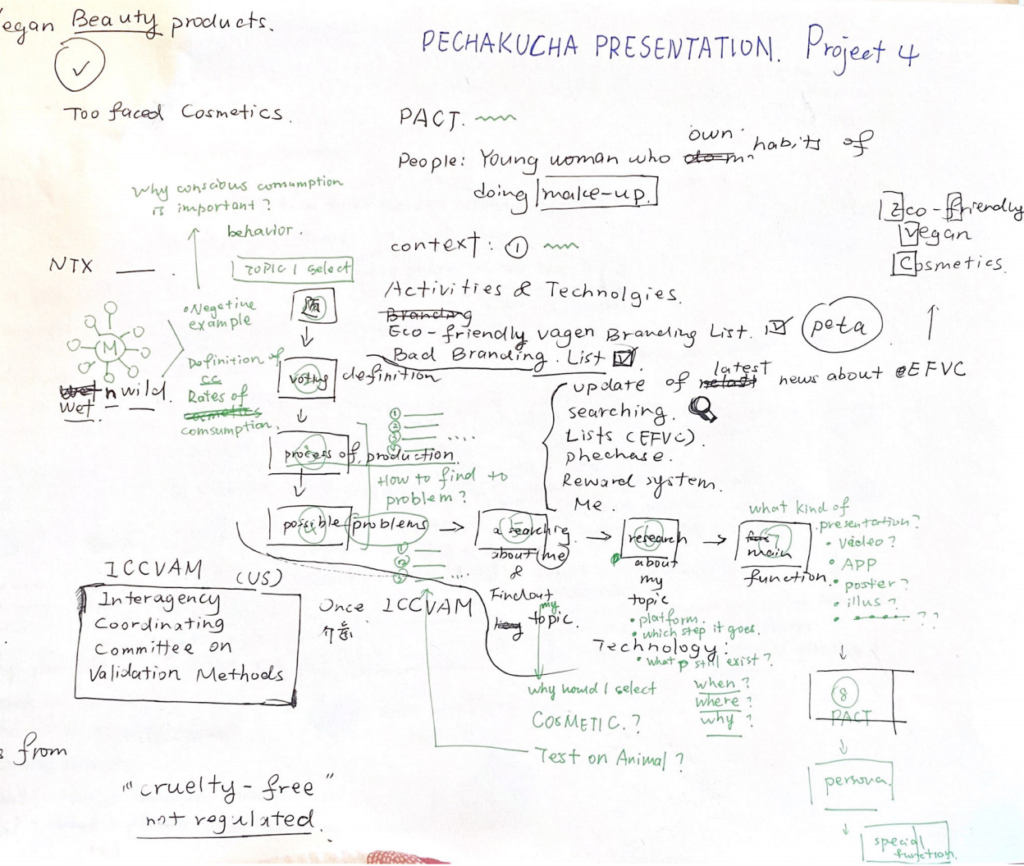 egan Beauty products.
PECHAKUCHA PRESENTATION. Project 4
Too faced Cosmetics.
PACT.
People: Young woman who own habits of
doing make-up.
Why conscious comsumption
is important?
behavior.
TOPIC I select
context: ①
Eco-friendly
Vegan
Cosmetics.
NTX
Activities & Technolgies.
Branding
Eco-friendly vagen Branding List.
peta
Bad Branding. List
Negetive
example
M
wet n wild.
wet
Definition of
cc
Rates of
cosmetics
comsumption.
voting definition
update of latest news about EFVC
searching.
Lists (EFVC).
phechase.
Reward system.
Me.
①
②
③
④
process of production.
How to find to
problem?
possible problems
searching
about me
&
Findout
my topic.
research
about
my
topic
• platform.
• which step it goes.
Technology:
• what p still exist?
main
function.
what kind of
presentation?
• video?
• APP
• poster?
• illus?
??
①
②
③
ICCVAM (US)
Interagency
Coordinating
Committee on
Validation Methods
Once ICCVAM
why would I select
COSMETIC.?
Test on Animal?
when?
where?
why?
⑧
PACT
persona
special
function.
s from
"cruelty-free"
not regulated.